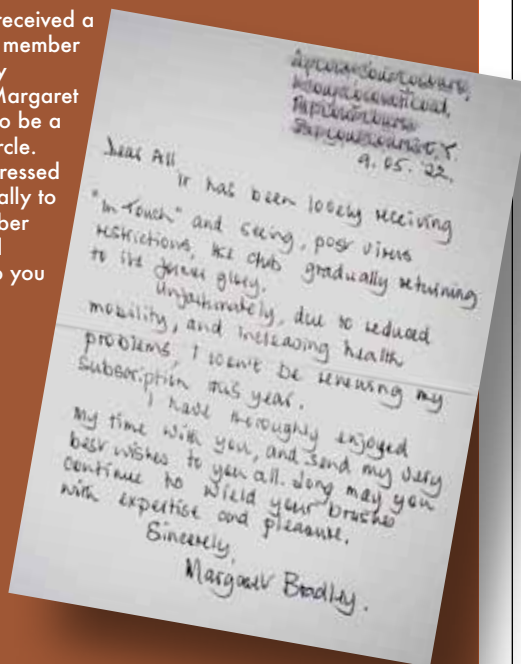 received a
member
y
Margaret
o be a
rcle.
ressed
ally to
ber
d
o you
9. 05. '22.
Dear All,
It has been lovely receiving
"In Touch" and seeing, post virus
restrictions, the club gradually returning
to its former glory.
Unfortunately, due to reduced
mobility, and increasing health
problems, I won't be renewing my
subscription this year.
I have thoroughly enjoyed
my time with you, and send my very
best wishes to you all. Long may you
continue to wield your brushes
with expertise and pleasure.
Sincerely,
Margaret Bradley.